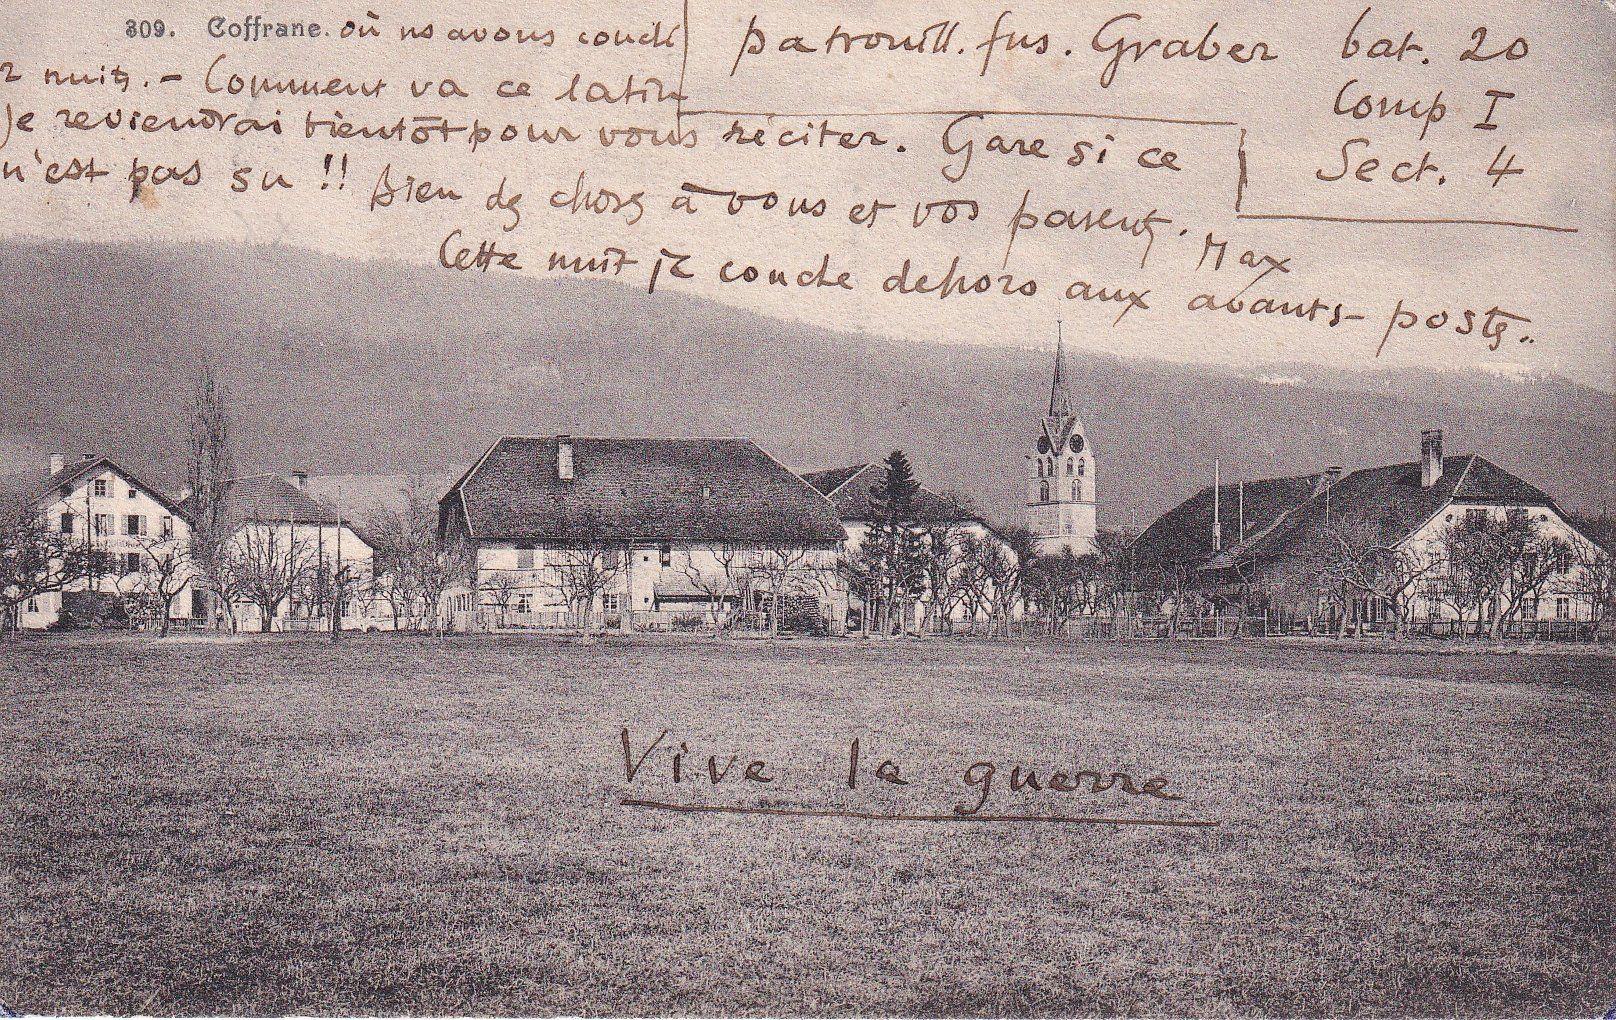 309. Coffrane. où ns avons couché
2 nuits. - Comment va ce latin
Je reviendrai bientôt pour vous réciter. Gare si ce
n'est pas su !! Bien des choses à vous et vos parents.
Max
Cette nuit je couche dehors aux avants-postes..
patrouill. fus. Graber bat. 20
Comp I
Sect. 4
Vive la guerre